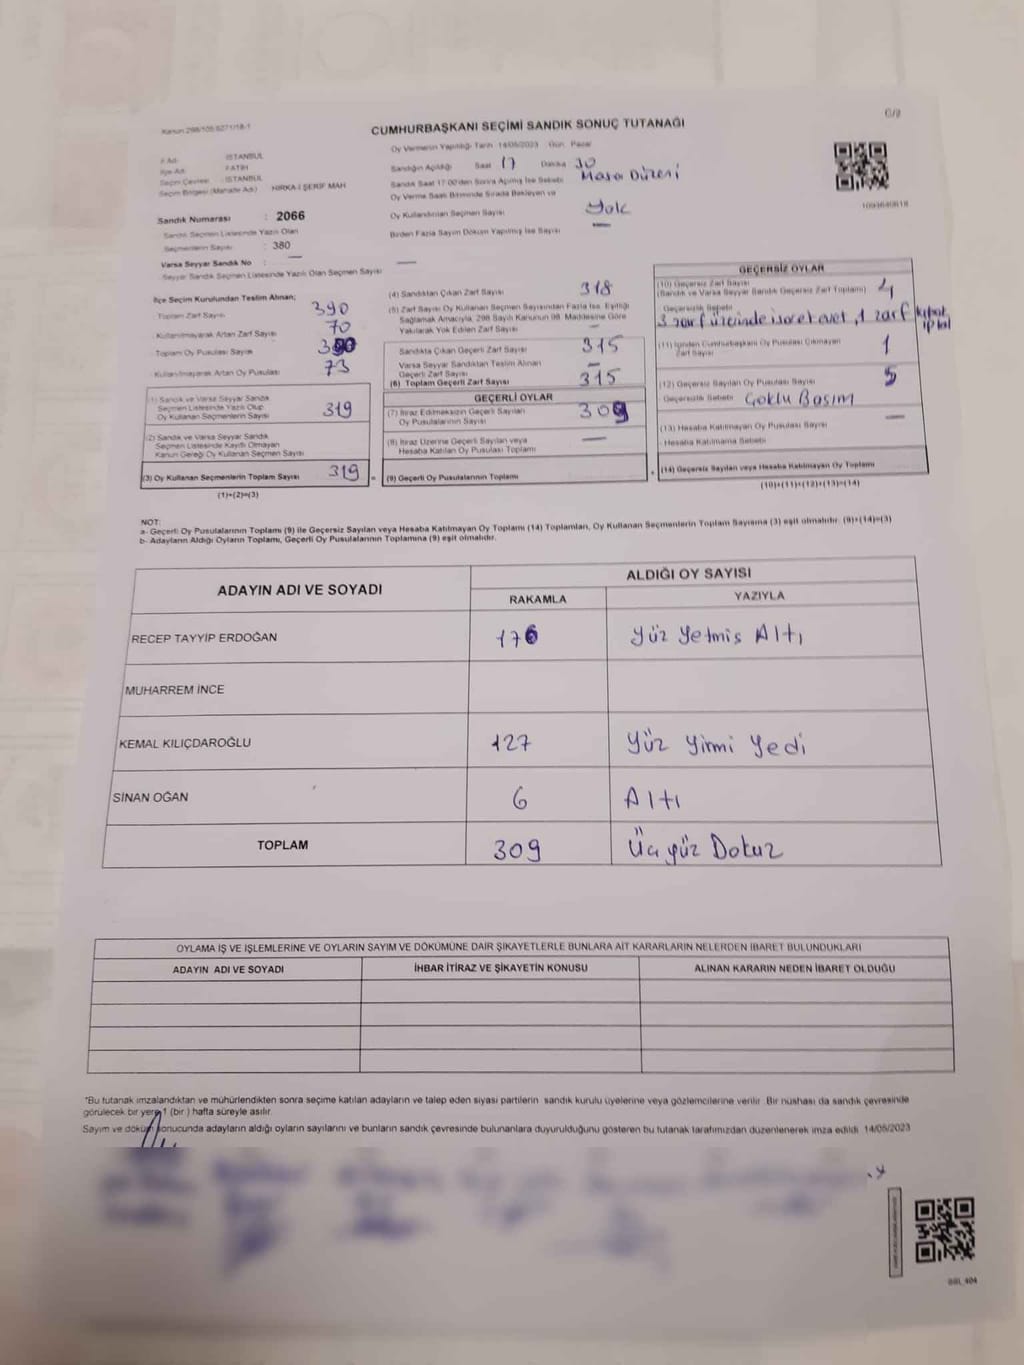 Kanun:298/105;6271/18-1
C/9
CUMHURBAŞKANI SEÇİMİ SANDIK SONUÇ TUTANAĞI
İl Adı : İSTANBUL
İlçe Adı : FATİH
Seçim Çevresi : İSTANBUL
Seçim Bölgesi (Mahalle Adı) : HIRKA-İ ŞERİF MAH
Sandık Numarası : 2066
Sandık Seçmen Listesinde Yazılı Olan
Seçmenlerin Sayısı : 380
Varsa Seyyar Sandık No : —
Seyyar Sandık Seçmen Listesinde Yazılı Olan Seçmen Sayısı —
Oy Vermenin Yapıldığı Tarih 14/05/2023 Gün Pazar
Sandığın Açıldığı Saat 17 Dakika 30
Sandık Saat 17:00'den Sonra Açılmış İse Sebebi Masa Düzeni
Oy Verme Saati Bitiminde Sırada Bekleyen ve
Oy Kullandırılan Seçmen Sayısı Yok
Birden Fazla Sayım Döküm Yapılmış İse Sayısı —
İlçe Seçim Kurulundan Teslim Alınan;
Toplam Zarf Sayısı 390
Kullanılmayarak Artan Zarf Sayısı 70
Toplam Oy Pusulası Sayısı
Kullanılmayarak Artan Oy Pusulası 73
(1) Sandık ve Varsa Seyyar Sandık
Seçmen Listesinde Yazılı Olup
Oy Kullanan Seçmenlerin Sayısı 319
(2) Sandık ve Varsa Seyyar Sandık
Seçmen Listesinde Kayıtlı Olmayan
Kanun Gereği Oy Kullanan Seçmen Sayısı
(3) Oy Kullanan Seçmenlerin Toplam Sayısı 319
(1)+(2)=(3)
(4) Sandıktan Çıkan Zarf Sayısı 318
(5) Zarf Sayısı Oy Kullanan Seçmen Sayısından Fazla İse, Eşitliği
Sağlamak Amacıyla, 298 Sayılı Kanunun 98. Maddesine Göre
Yakılarak Yok Edilen Zarf Sayısı —
Sandıkta Çıkan Geçerli Zarf Sayısı 315
Varsa Seyyar Sandıktan Teslim Alınan
Geçerli Zarf Sayısı —
(6) Toplam Geçerli Zarf Sayısı 315
GEÇERLİ OYLAR
(7) İtiraz Edilmeksizin Geçerli Sayılan
Oy Pusulalarının Sayısı 309
(8) İtiraz Üzerine Geçerli Sayılan veya
Hesaba Katılan Oy Pusulası Toplamı —
(9) Geçerli Oy Pusulalarının Toplamı
GEÇERSİZ OYLAR
(10) Geçersiz Zarf Sayısı
(Sandık ve Varsa Seyyar Sandık Geçersiz Zarf Toplamı) 4
Geçersizlik Sebebi
3 zarf üzerinde isaret evet, 1 zarf
(11) İçinden Cumhurbaşkanı Oy Pusulası Çıkmayan
Zarf Sayısı 1
(12) Geçersiz Sayılan Oy Pusulası Sayısı 5
Geçersizlik Sebebi Çoklu Basım
(13) Hesaba Katılmayan Oy Pusulası Sayısı —
Hesaba Katılmama Sebebi
(14) Geçersiz Sayılan veya Hesaba Katılmayan Oy Toplamı
(10)+(11)+(12)+(13)=(14)
NOT:
a- Geçerli Oy Pusulalarının Toplamı (9) ile Geçersiz Sayılan veya Hesaba Katılmayan Oy Toplamı (14) Toplamları, Oy Kullanan Seçmenlerin Toplam Sayısına (3) eşit olmalıdır. (9)+(14)=(3)
b- Adayların Aldığı Oyların Toplamı, Geçerli Oy Pusulalarının Toplamına (9) eşit olmalıdır.
ADAYIN ADI VE SOYADI
ALDIĞI OY SAYISI
RAKAMLA YAZIYLA
RECEP TAYYİP ERDOĞAN 176 Yüz Yetmiş Altı
MUHARREM İNCE
KEMAL KILIÇDAROĞLU 127 Yüz Yirmi Yedi
SİNAN OĞAN 6 Altı
TOPLAM 309 Üç yüz Dokuz
OYLAMA İŞ VE İŞLEMLERİNE VE OYLARIN SAYIM VE DÖKÜMÜNE DAİR ŞİKAYETLERLE BUNLARA AİT KARARLARIN NELERDEN İBARET BULUNDUKLARI
ADAYIN ADI VE SOYADI İHBAR İTİRAZ VE ŞİKAYETİN KONUSU ALINAN KARARIN NEDEN İBARET OLDUĞU
*Bu tutanak imzalandıktan ve mühürlendikten sonra seçime katılan adayların ve talep eden siyasi partilerin sandık kurulu üyelerine veya gözlemcilerine verilir. Bir nüshası da sandık çevresinde
görülecek bir yere 1 (bir ) hafta süreyle asılır.
Sayım ve döküm sonucunda adayların aldığı oyların sayılarını ve bunların sandık çevresinde bulunanlara duyurulduğunu gösteren bu tutanak tarafımızdan düzenlenerek imza edildi 14/05/2023